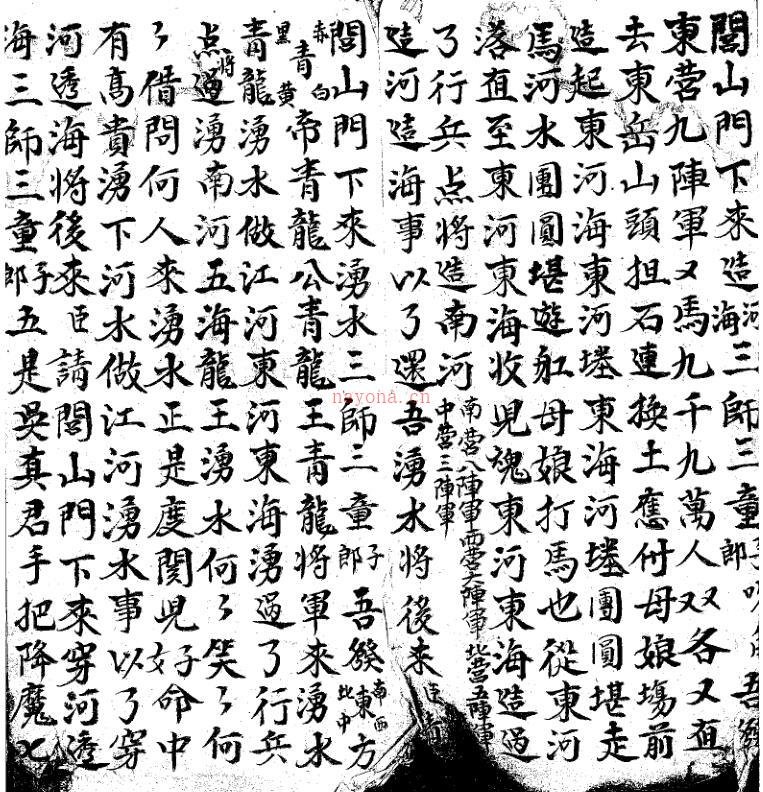 閭山門下來造河海三師三童子郎吩付吾發
東营九陣軍又馬九千九萬人双各又直
去東岳山頭担石連换土應付母娘塲前
造起東河海東河墶東海河墶團圓堪走
馬河水團圓堪遊舡母娘打馬也從東河
落直至東河東海收児魂東河東海造過
了行兵点將造南河南营八陣軍西营六陣軍北营五陣軍中营三陣軍
造河造海事以了還吾湧水將後来
閭山門下來湧水三師三童子郎吾發東南西北中方
赤青白黑黄帝青龍公青龍王青龍將軍來湧水
青龍湧水做江河東河東海湧過了行兵
点將過湧南河五海龍王湧水何々笑々何
々借問何人來湧水正是度関児好子命中
有髙貴湧下河水做江河湧水事以了穿
河透海將後來臣請閭山門下來穿河透
海三師三童子郎五是吳真君手把降魔七
nayona.cn